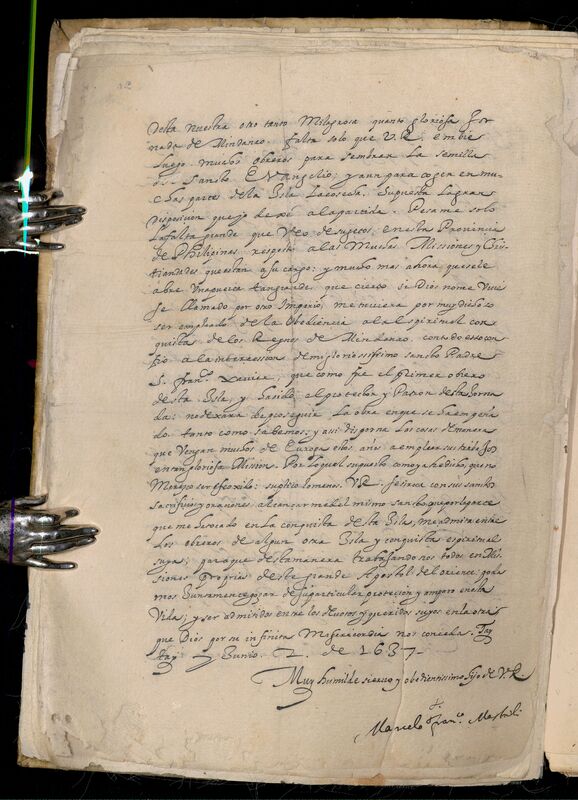 desta nuestra otro tanto Milagrosa quanto gloriosa Jor
nada de Mindanao. falta solo que V.R. embie
luego muchos obreros para sembrar la semilla
del Sancto EVangelio; y aun para coger en mu
chas partes desta Isla la cosecha, supuesta la gran
disposicion que yo dexè a la partida. Pesame solo
la falta grande que Veo de sugetos en esta Provincia
de Philipinas respeto a las Muchas Missiones y Chris
tiandades que estan a su cargo: y mucho mas ahora que se le
abre Una puerta tan grande. que cierto si Dios no me Vuie
se llamado por otro Imperio, me tuviera por muy dichoso
ser empleado de la Obediencia a la espiritual con
quista de los Reynos de Mindanao. con todo esso con
fio a la intercession de mi gloriosissimo sancto Padre
S. Franco. Xavier, que como fue el primer obrero
desta Isla, y ha sido el protector y Patron desta Jorna
da: no dexarà de proseguir la obra en que se ha empeña
do tanto como sabemos; y assi disponga las cosas de manera
que Vengan muchos de Europa estos años a emplear sus
en tan gloriosa Mission. Por lo qual supuesto como ya he dicho, que no
Merezco ser suplico lo menos V.R. se sirva con sus sanctos
sacrificios y oraciones alcançarme del mismo sancto que por
que me ha tocado en la conquista desta Isla, me admita entre
los obreros de alguna otra Isla y conquista espiritual
suya; para que desta manera trabajando nos todos en Mis
siones proprias deste grande Apostol del oriente: poda
mos Juntamente gozar de su particular proteccion y amparo en esta
Vida, y ser admitidos entre los deuotos y queridos suyos en la otra
que Dios por su infinita Misericordia nos conceda. Tay
tay y Junio 2 de 1637
Muy humilde sieruo y obedientissimo hijo de V.R.
Marcelo Franco. Mastrili